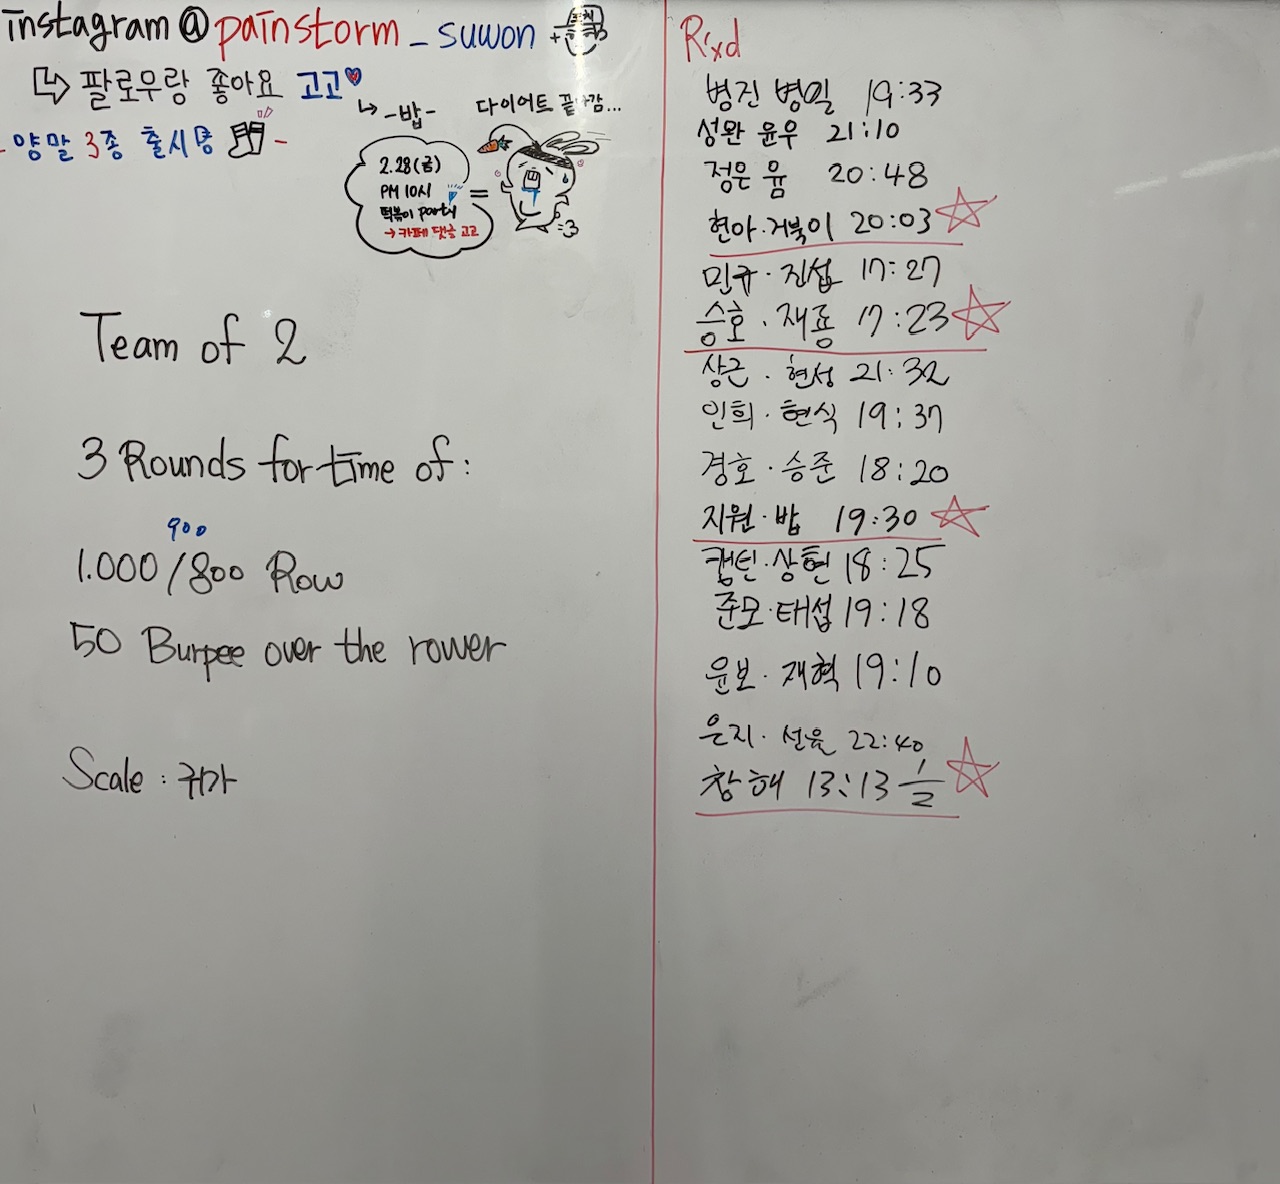 instagram @ painstorm _ suwon
↳ 팔로우랑 좋아요 고고♥
- 양말 3종 출시중 -
↳ -밥-
다이어트 끝나감...
2.28(금)
PM 10시
떡볶이 party
→ 카페 댓글 고고
=
Team of 2
3 Rounds for time of :
900
1.000 / 800 Row
50 Burpee over the rower
Scale : 귀가
Rxd
병진 병일 19:33
성완 윤우 21:10
정은 윰 20:48
현아·거북이 20:03 ☆
민규·진섭 17:27
승호·재종 17:23 ☆
상근·현성 21:32
인희·현식 19:37
경호·승준 18:20
지원·밥 19:30 ☆
캡틴·상현 18:25
준모·태섭 19:18
윤보·재혁 19:10
은지·선율 22:40
창해 13:13 1/2 ☆